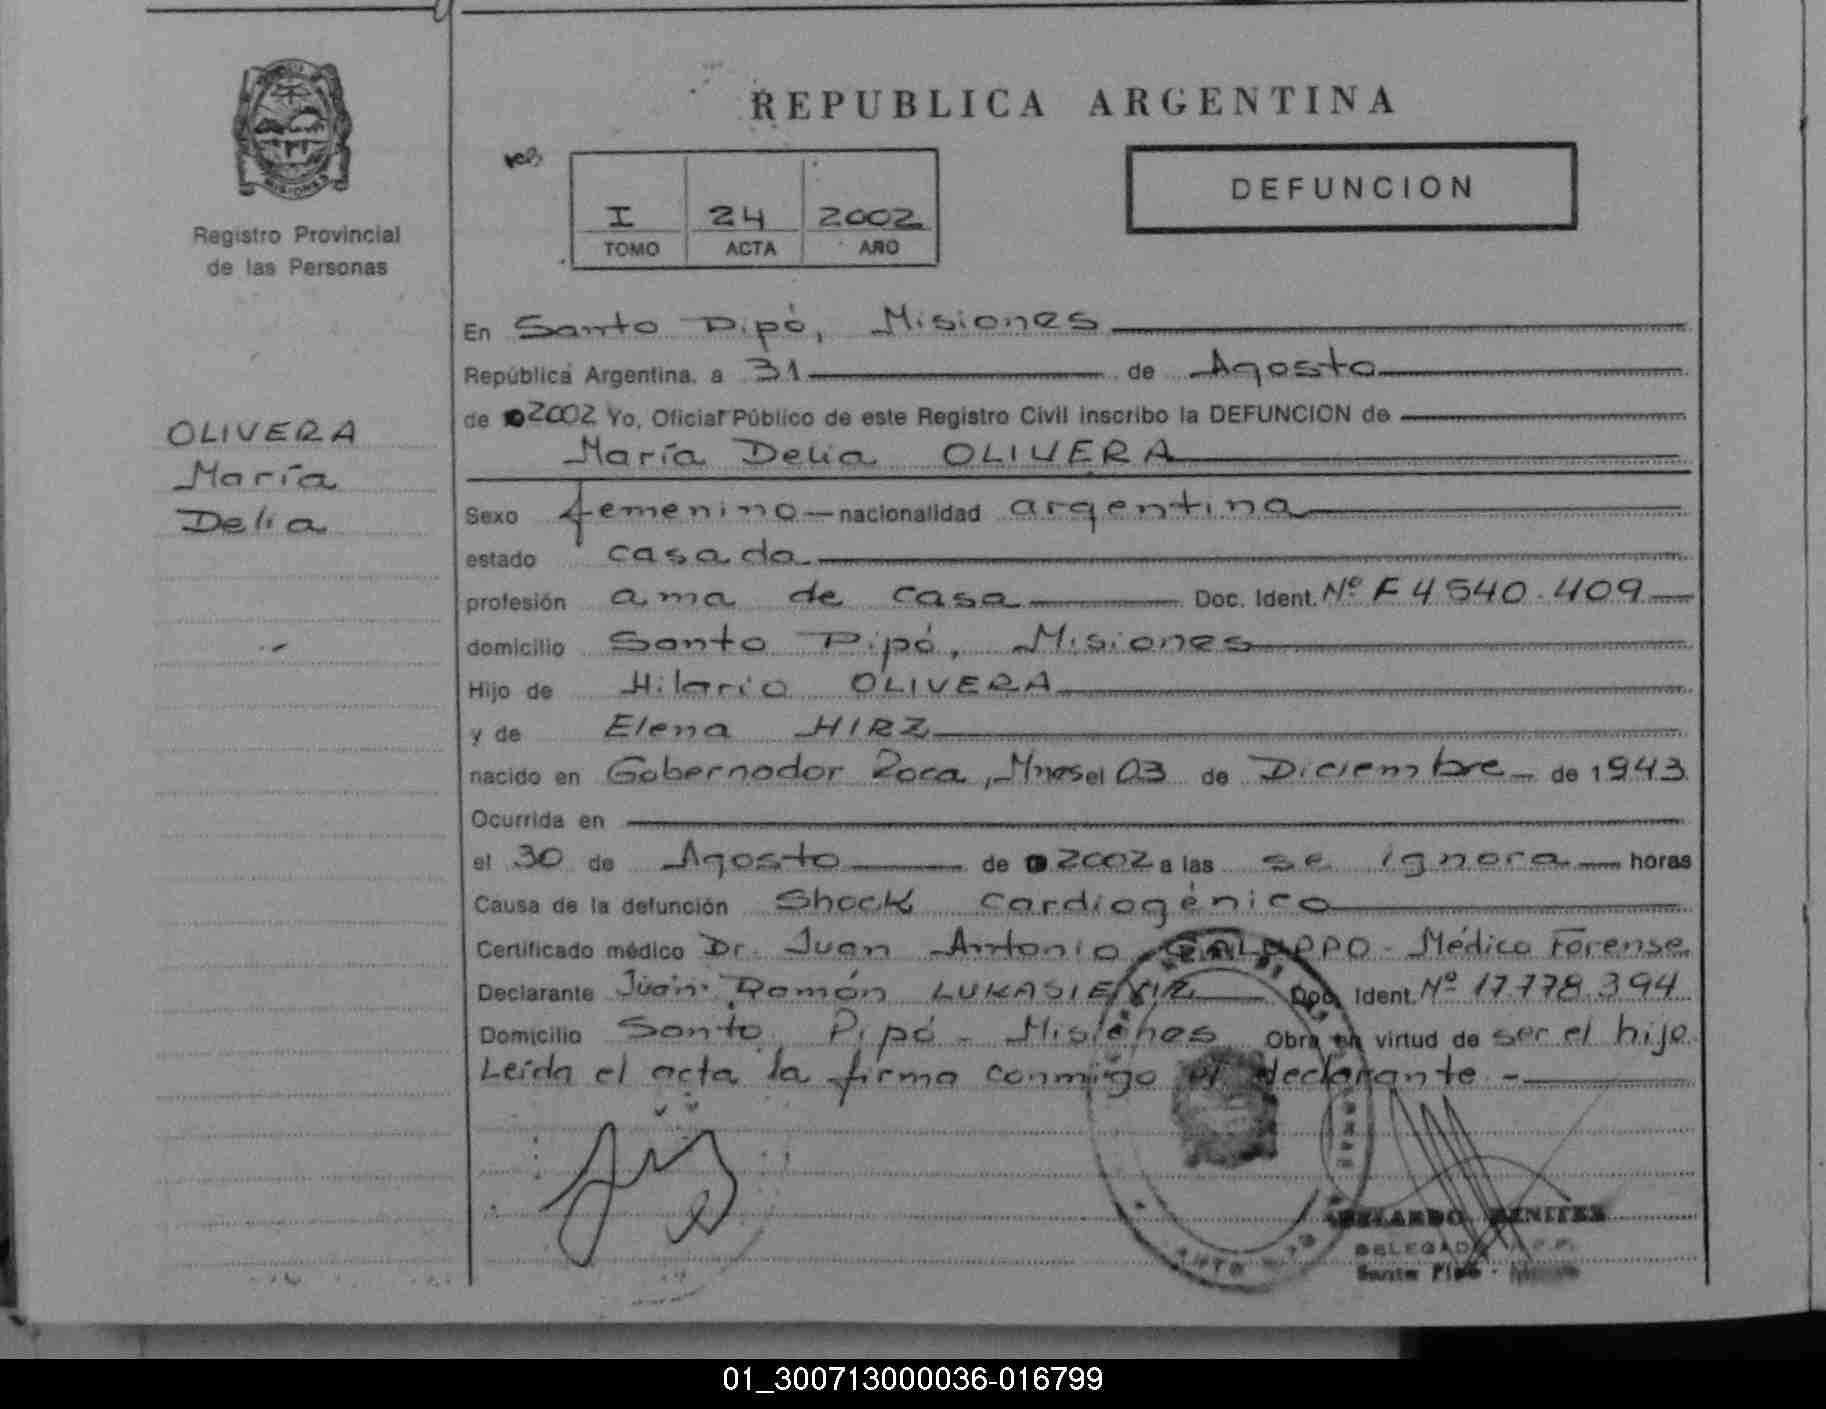 REPUBLICA ARGENTINA
MISIONES
Registro Provincial
de las Personas
I 24 2002
TOMO ACTA AÑO
DEFUNCION
OLIVERA
María
Delia
En Santo Pipó, Misiones
República Argentina, a 31 de Agosto
de 2002 Yo, Oficial Público de este Registro Civil inscribo la DEFUNCION de
María Delia OLIVERA
Sexo femenino nacionalidad argentina
estado casada
profesión ama de casa Doc. Ident. Nº F 4540.409
domicilio Santo Pipó, Misiones
Hijo de Hilario OLIVERA
y de Elena HIRZ
nacido en Gobernador Roca, Mnes el 03 de Diciembre de 1943
Ocurrida en
el 30 de Agosto de 2002 a las se ignora horas
Causa de la defunción Shock cardiogénico
Certificado médico Dr. Juan Antonio GALUPPO - Médico Forense
Declarante Juan Ramón LUKASIEVIZ Doc. Ident. Nº 17.778.394
Domicilio Santo Pipó - Misiones Obra en virtud de ser el hijo.
Leída el acta la firma conmigo el declarante -
ABELARDO BENITEZ
DELEGADO R.P.P.
Santo Pipó -
01_300713000036-016799